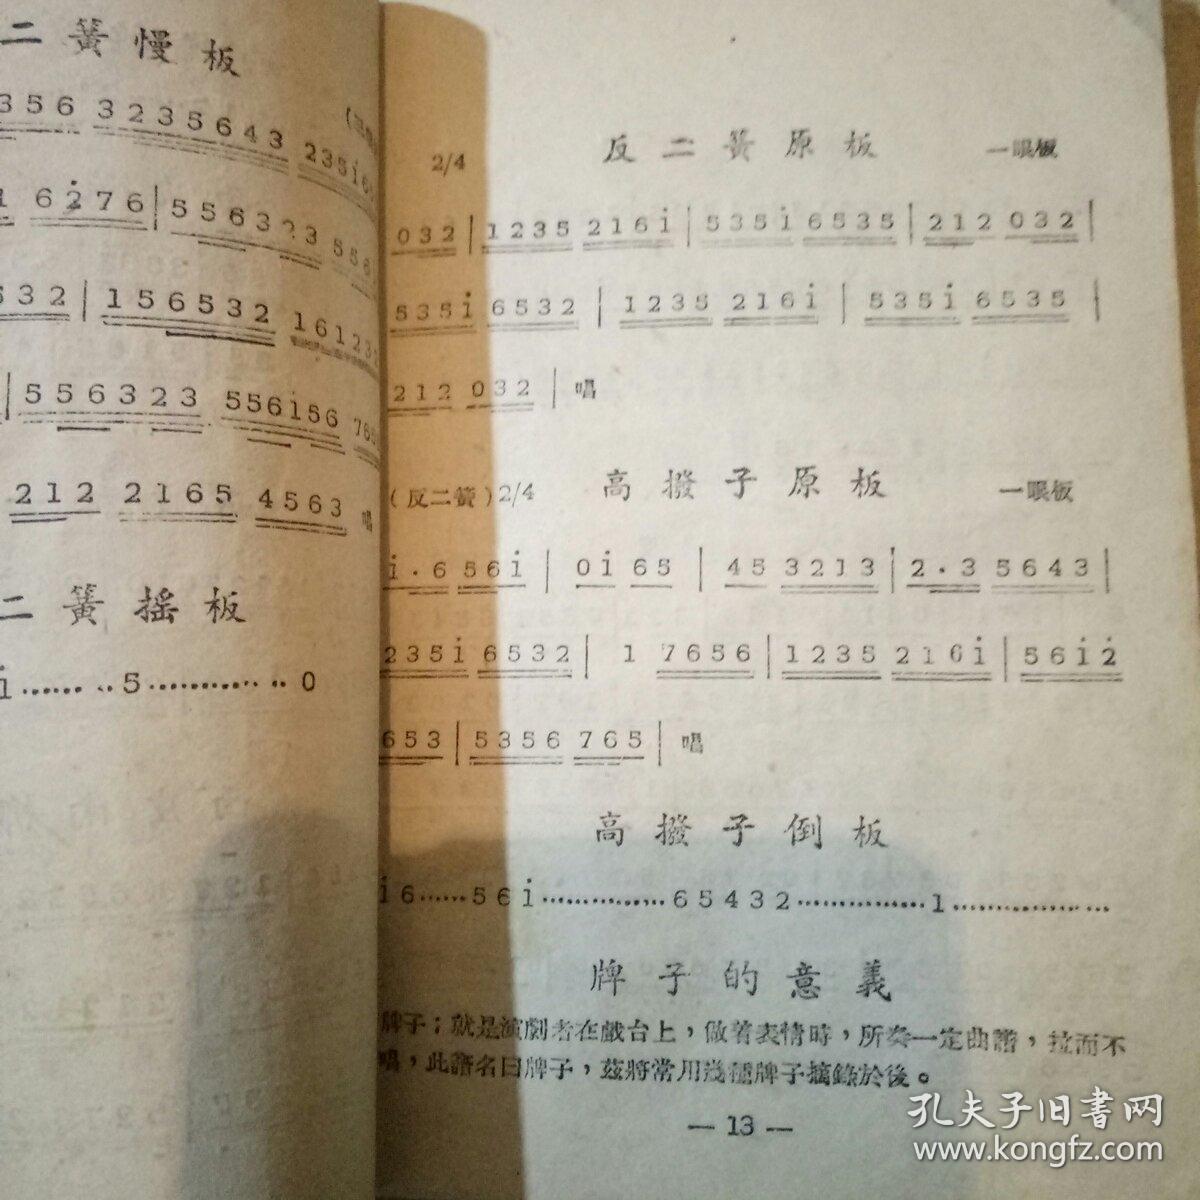 二簧慢板
356 3235643 235i6
1 6276 | 556323 556
532 | 156532 161232
| 556323 556i56 765
212 2165 4563 唱
二簧摇板
i……5…………0
反二簧原板
2/4 一眼板
032 | 1235 216i | 535i 6535 | 212 032 |
535i 6532 | 1235 216i | 535i 6535 |
212 032 | 唱
高撥子原板
(反二簧) 2/4 一眼板
i·6 56i | 0i 65 | 45 3213 | 2·3 5643 |
235i 6532 | 1 7656 | 1235 216i | 56i2̇
653 | 5356 765 | 唱
高撥子倒板
i6……56i……………65432……………1………………
牌子的意義
牌子；就是演劇者在戲台上，做着表情時，所奏一定曲譜，拉而不
唱，此譜名曰牌子，茲將常用幾種牌子摘錄於後。
— 13 —
孔夫子旧書网
www.kongfz.com